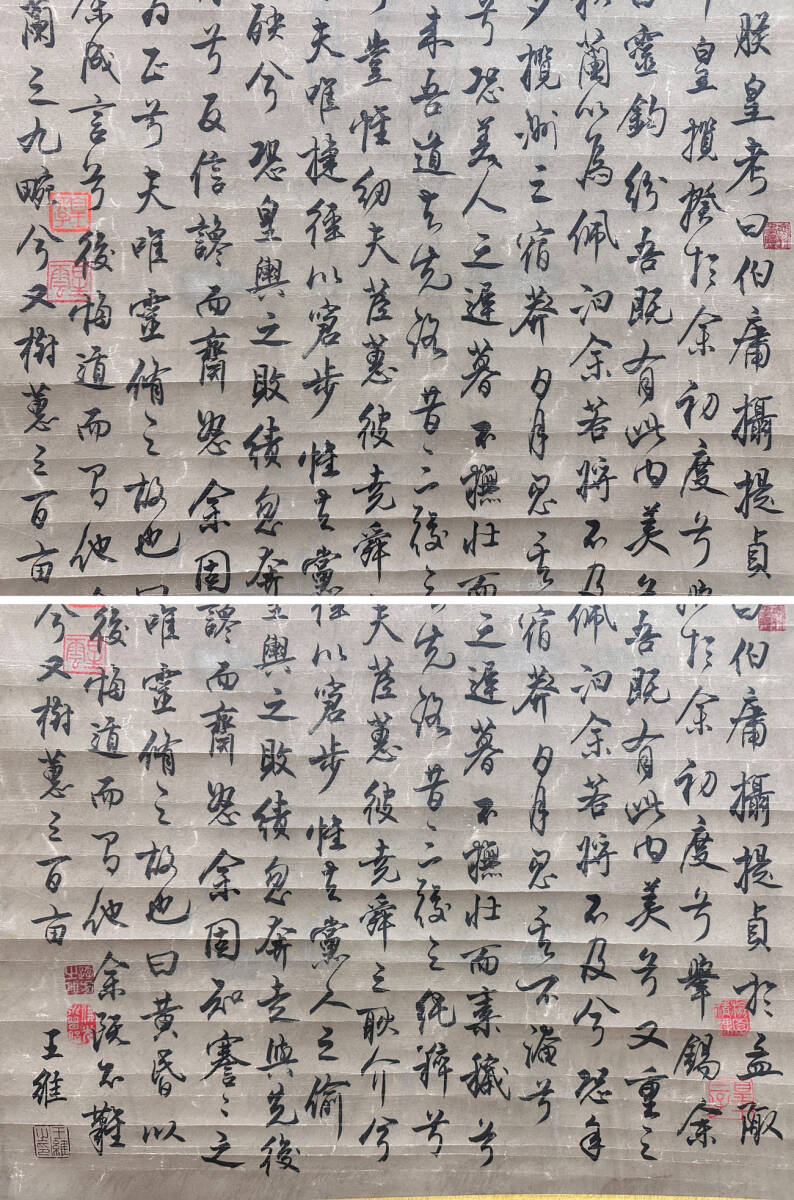 朕皇考曰伯庸攝提貞
皇攬揆於余初度兮
靈鈞紛吾既有此內美
蘭以為佩汩余若將不及
夕攬洲之宿莽日月忽其
兮恐美人之遲暮不撫壯而
來吾道其先路昔三後之
豈惟紉夫茝蕙彼堯舜
夫唯捷徑以窘步惟其黨
殃兮恐皇輿之敗績忽奔
兮反信讒而齋怒余固
為正兮夫唯靈脩之故也曰
成言兮後悔遁而有他
蘭之九畹兮又樹蕙之百亩
曰伯庸攝提貞於孟陬
於余初度兮肇錫余
吾既有此內美兮又重之
佩汩余若將不及兮恐年
宿莽日月忽其不淹兮
之遲暮不撫壯而棄穢兮
先路昔三後之純粹兮
夫茝蕙彼堯舜之耿介兮
以窘步惟其黨人之偷
輿之敗績忽奔走與先後
讒而齋怒余固知謇〻之
唯靈脩之故也曰黃昏以
後悔遁而有他余既不難
兮又樹蕙之百亩
王維
王維之印